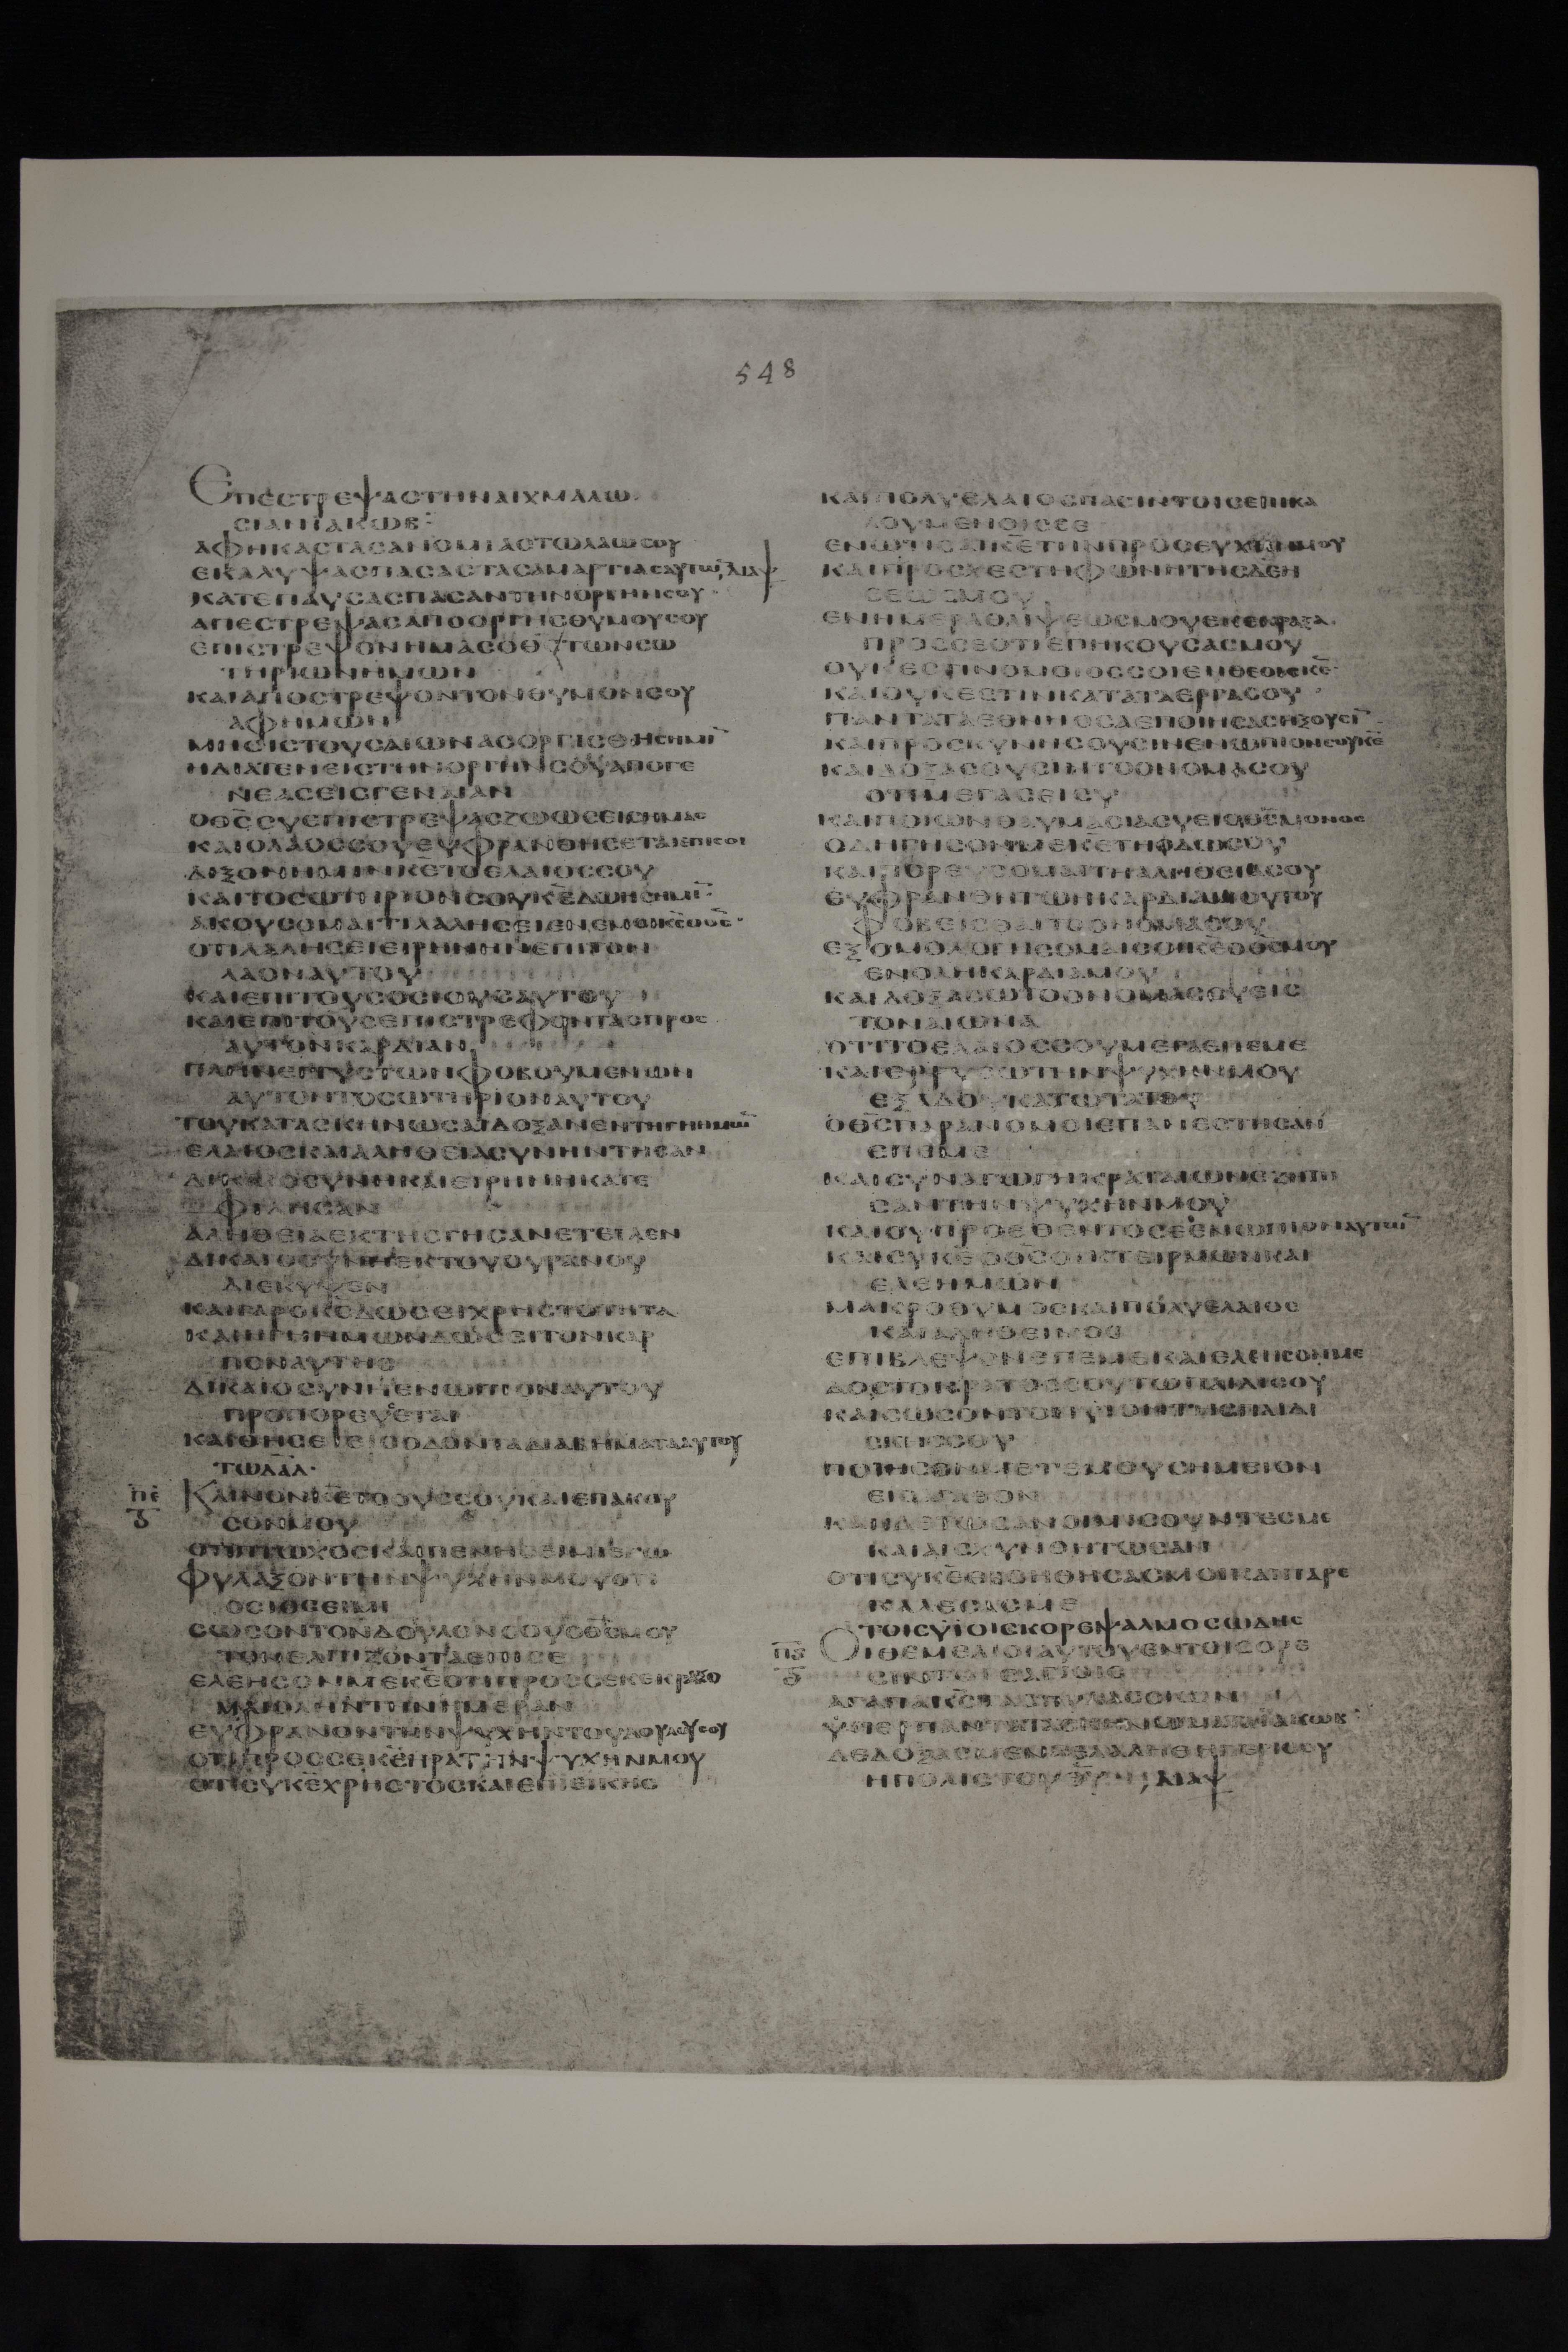 548
ΕΠΕCΤΡΕΨΑCΤΗΝΑΙΧΜΑΛΩ
CΙΑΝΙΑΚΩΒ:
ΑΦΗΚΑCΤΑCΑΝΟΜΙΑCΤΩΛΑΩCΟΥ
ΕΚΑΛΥΨΑCΠΑCΑCΤΑCΑΜΑΡΤΙΑCΑΥΤΩ̅ ΔΙΑΨ
ΚΑΤΕΠΑΥCΑCΠΑCΑΝΤΗΝΟΡΓΗΝCΟΥ
ΑΠΕCΤΡΕΨΑCΑΠΟΟΡΓΗCΘΥΜΟΥCΟΥ
ΕΠΙCΤΡΕΨΟΝΗΜΑCΟΘ̅C̅ΤΩΝCΩ
ΤΗΡΙΩΝΗΜΩΝ
ΚΑΙΑΠΟCΤΡΕΨΟΝΤΟΝΘΥΜΟΝCΟΥ
ΑΦΗΜΩΝ
ΜΗΕΙCΤΟΥCΑΙΩΝΑCΟΡΓΙCΘΗCΗΜΙ̅
ΗΔΙΑΤΕΝΕΙCΤΗΝΟΡΓΗΝCΟΥΑΠΟΓΕ
ΝΕΑCΕΙCΓΕΝΕΑΝ
ΟΘ̅C̅CΥΕΠΙCΤΡΕΨΑCΖΩΩCΕΙCΗΜΑC
ΚΑΙΟΛΑΟCCΟΥΕΥΦΡΑΝΘΗCΕΤΑΙΕΠΙCΟΙ
ΔΙΞΟΝΗΜΙΝΚ̅Ε̅ΤΟΕΛΑΙΟCCΟΥ
ΚΑΙΤΟCΩΤΗΡΙΟΝCΟΥΚ̅Ε̅ΔΩΗCΗΜΙ̅
ΑΚΟΥCΟΜΑΙΤΙΛΑΛΗCΕΙΕΝΕΜΟΙΚ̅C̅ΟΘ̅C̅
ΟΤΙΛΑΛΗCΕΙΕΙΡΗΝΗΝΕΠΙΤΟΝ
ΛΑΟΝΑΥΤΟΥ
ΚΑΙΕΠΙΤΟΥCΟCΙΟΥCΑΥΤΟΥ
ΚΑΙΕΠΙΤΟΥCΕΠΙCΤΡΕΦΟΝΤΑCΠΡΟC
ΑΥΤΟΝΚΑΡΔΙΑΝ
ΠΛΗΝΕΓΓΥCΤΩΝΦΟΒΟΥΜΕΝΩΝ
ΑΥΤΟΝΤΟCΩΤΗΡΙΟΝΑΥΤΟΥ
ΤΟΥΚΑΤΑCΚΗΝΩCΑΙΔΟΞΑΝΕΝΤΗΓΗΗΜΩ̅
ΕΛΑΙΟCΚΑΙΑΛΗΘΕΙΑCΥΝΗΝΤΗCΑΝ
ΔΙΚΑΙΟCΥΝΗΚΑΙΕΙΡΗΝΗΚΑΤΕ
ΦΙΛΗCΑΝ
ΑΛΗΘΕΙΑΕΚΤΗCΓΗCΑΝΕΤΕΙΛΕΝ
ΔΙΚΑΙΟCΥΝΗΕΚΤΟΥΟΥΡΑΝΟΥ
ΔΙΕΚΥΨΕΝ
ΚΑΙΓΑΡΟΚ̅C̅ΔΩCΕΙΧΡΗCΤΟΤΗΤΑ
ΚΑΙΗΓΗΗΜΩΝΔΩCΕΙΤΟΝΚΑΡ
ΠΟΝΑΥΤΗC
ΔΙΚΑΙΟCΥΝΗΕΝΩΠΙΟΝΑΥΤΟΥ
ΠΡΟΠΟΡΕΥCΕΤΑΙ
ΚΑΙΘΗCΕΙΕΙCΟΔΟΝΤΑΔΙΑΒΗΜΑΤΑΑΥΤΟΥ
ΤΩΔΑΔ
Π̅Ε̅ ΚΛΙΝΟΝΚ̅Ε̅ΤΟΟΥCCΟΥΚΑΙΕΠΑΚΟΥ
CΟΝΜΟΥ
ΟΤΙΠΤΩΧΟCΚΑΙΠΕΝΗCΕΙΜΙΕΓΩ
ΦΥΛΑΞΟΝΤΗΝΨΥΧΗΝΜΟΥΟΤΙ
ΟCΙΟCΕΙΜΙ
CΩCΟΝΤΟΝΔΟΥΛΟΝCΟΥΟΘ̅C̅ΜΟΥ
ΤΟΝΕΛΠΙΖΟΝΤΑΕΠΙCΕ
ΕΛΕΗCΟΝΜΕΚ̅Ε̅ΟΤΙΠΡΟCCΕΚΕΚΡΑΞΟ
ΜΑΙΟΛΗΝΤΗΝΗΜΕΡΑΝ
ΕΥΦΡΑΝΟΝΤΗΝΨΥΧΗΝΤΟΥΔΟΥΛΟΥCΟΥ
ΟΤΙΠΡΟCCΕΚ̅Ε̅ΗΡΑΤΗΝΨΥΧΗΝΜΟΥ
ΟΤΙCΥΚ̅Ε̅ΧΡΗCΤΟCΚΑΙΕΠΙΕΙΚΗC
ΚΑΙΠΟΛΥΕΛΑΙΟCΠΑCΙΝΤΟΙCΕΠΙΚΑ
ΛΟΥΜΕΝΟΙCCΕ
ΕΝΩΤΙCΑΙΚ̅Ε̅ΤΗΝΠΡΟCΕΥΧΗΝΜΟΥ
ΚΑΙΠΡΟCΧΕCΤΗΦΩΝΗΤΗCΔΕΗ
CΕΩCΜΟΥ
ΕΝΗΜΕΡΑΘΛΙΨΕΩCΜΟΥΕΚΕΚΡΑΞΑ
ΠΡΟCCΕΟΤΙΕΠΗΚΟΥCΑCΜΟΥ
ΟΥΚΕCΤΙΝΟΜΟΙΟCCΟΙΕΝΘΕΟΙCΚ̅Ε̅
ΚΑΙΟΥΚΕCΤΙΝΚΑΤΑΤΑΕΡΓΑCΟΥ
ΠΑΝΤΑΤΑΕΘΝΗΟCΑΕΠΟΙΗCΑCΗΞΟΥCΙ̅
ΚΑΙΠΡΟCΚΥΝΗCΟΥCΙΝΕΝΩΠΙΟΝCΟΥΚ̅Ε̅
ΚΑΙΔΟΞΑCΟΥCΙΝΤΟΟΝΟΜΑCΟΥ
ΟΤΙΜΕΓΑCΕΙCΥ
ΚΑΙΠΟΙΩΝΘΑΥΜΑCΙΑCΥΕΙΟΘ̅C̅ΜΟΝΟC
ΟΔΗΓΗCΟΝΜΕΚ̅Ε̅ΤΗΟΔΩCΟΥ
ΚΑΙΠΟΡΕΥCΟΜΑΙΤΗΑΛΗΘΕΙΑCΟΥ
ΕΥΦΡΑΝΘΗΤΩΗΚΑΡΔΙΑΜΟΥΤΟΥ
ΦΟΒΕΙCΘΑΙΤΟΟΝΟΜΑCΟΥ
ΕΞΟΜΟΛΟΓΗCΟΜΑΙCΟΙΚ̅Ε̅ΟΘ̅C̅ΜΟΥ
ΕΝΟΛΗΚΑΡΔΙΑΜΟΥ
ΚΑΙΔΟΞΑCΩΤΟΟΝΟΜΑCΟΥΕΙC
ΤΟΝΑΙΩΝΑ
ΟΤΙΤΟΕΛΑΙΟCCΟΥΜΕΓΑΕΠΕΜΕ
ΚΑΙΕΡΡΥCΩΤΗΝΨΥΧΗΝΜΟΥ
ΕΞΑΔΟΥΚΑΤΩΤΑΤΟΥ
ΟΘ̅C̅ΠΑΡΑΝΟΜΟΙΕΠΑΝΕCΤΗCΑΝ
ΕΠΕΜΕ
ΚΑΙCΥΝΑΓΩΓΗΚΡΑΤΑΙΩΝΕΖΗΤΗ
CΑΝΤΗΝΨΥΧΗΝΜΟΥ
ΚΑΙΟΥΠΡΟΕΘΕΝΤΟCΕΕΝΩΠΙΟΝΑΥΤΩ̅
ΚΑΙCΥΚ̅Ε̅ΟΘ̅C̅ΟΙΚΤΕΙΡΜΩΝΚΑΙ
ΕΛΕΗΜΩΝ
ΜΑΚΡΟΘΥΜΟCΚΑΙΠΟΛΥΕΛΑΙΟC
ΚΑΙΑΛΗΘΕΙΝΟC
ΕΠΙΒΛΕΨΟΝΕΠΕΜΕΚΑΙΕΛΕΗCΟΝΜΕ
ΔΟCΤΟΚΡΑΤΟCCΟΥΤΩΠΑΙΔΙCΟΥ
ΚΑΙCΩCΟΝΤΟΝΥΙΟΝΤΗCΠΑΙΔΙ
CΚΗCCΟΥ
ΠΟΙΗCΟΝΜΕΤΕΜΟΥCΗΜΕΙΟΝ
ΕΙCΑΓΑΘΟΝ
ΚΑΙΙΔΕΤΩCΑΝΟΙΜΙCΟΥΝΤΕCΜΕ
ΚΑΙΑΙCΧΥΝΘΗΤΩCΑΝ
ΟΤΙCΥΚ̅Ε̅ΕΒΟΗΘΗCΑCΜΟΙΚΑΙΠΑΡΕ
ΚΑΛΕCΑCΜΕ
ΤΟΙCΥΙΟΙCΚΟΡΕΨΑΛΜΟCΩΔΗC
Π̅Ϛ̅ ΟΙΘΕΜΕΛΙΟΙΑΥΤΟΥΕΝΤΟΙCΟΡΕ
CΙΝΤΟΙCΑΓΙΟΙC
ΑΓΑΠΑΚ̅C̅ΤΑCΠΥΛΑCCΙΩΝ
ΥΠΕΡΠΑΝΤΑΤΑCΚΗΝΩΜΑΤΑΙΑΚΩΒ
ΔΕΔΟΞΑCΜΕΝΑΕΛΑΛΗΘΗΠΕΡΙCΟΥ
ΗΠΟΛΙCΤΟΥΘ̅Υ̅ ΔΙΑΨ